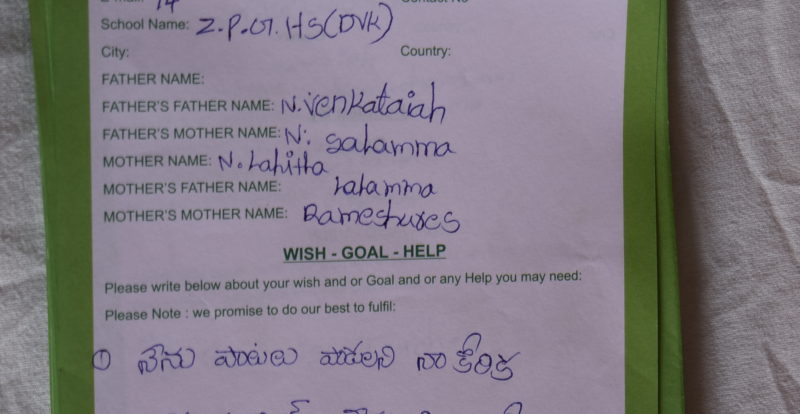 School Name: Z.P.G.HS(DVK)
City: Country:
FATHER NAME:
FATHER'S FATHER NAME: N.Venkataiah
FATHER'S MOTHER NAME: N. Salamma
MOTHER NAME: N.Lahitha
MOTHER'S FATHER NAME: Lalamma
MOTHER'S MOTHER NAME: Rameshures
WISH - GOAL - HELP
Please write below about your wish and or Goal and or any Help you may need:
Please Note : we promise to do our best to fulfil:
① నేను పాటలు పాడలని నా కోరిక